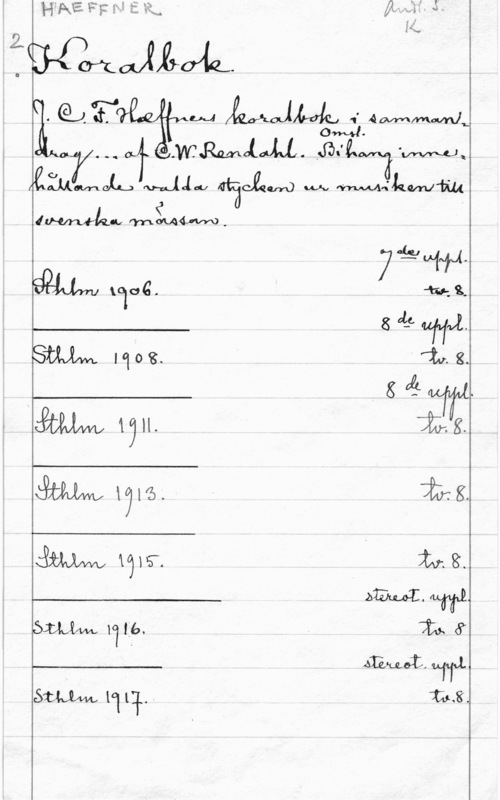 HAEFFNER
Andl. S.
K
2.
Koralbok.
J. C. F. Hæffners koralbok i samman-
drag... af C. W. Rendahl. Omsl. Bihang inne-
hållande valda stycken ur musiken till
svenska mässan.
7 de uppl.
Sthlm 1906. tv. 8.
8 de uppl.
Sthlm 1908. tv. 8.
8 de uppl.
Sthlm 1911. tv. 8.
Sthlm 1913. tv. 8.
Sthlm 1915. tv. 8.
stereot. uppl.
Sthlm 1916. tv. 8
stereot. uppl.
Sthlm 1917. tv. 8.